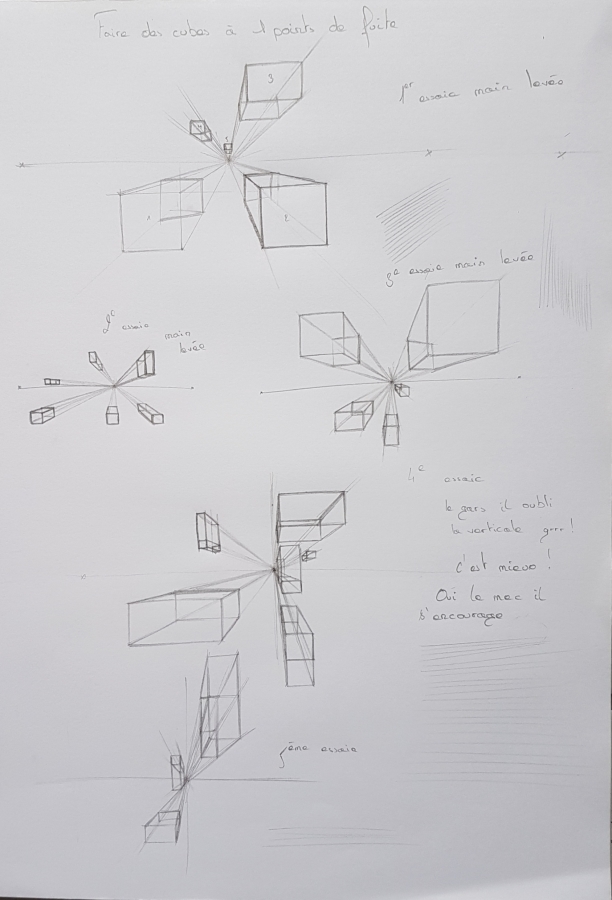 Faire des cubes à 1 points de fuite
1er essaie main levée
3
1
2
3e essaie main levée
2e essaie
main
levée
4e essaie
le gars il oubli
la verticale grrr !
c'est mieux !
Oui le mec il
s'encourage
5ème essaie